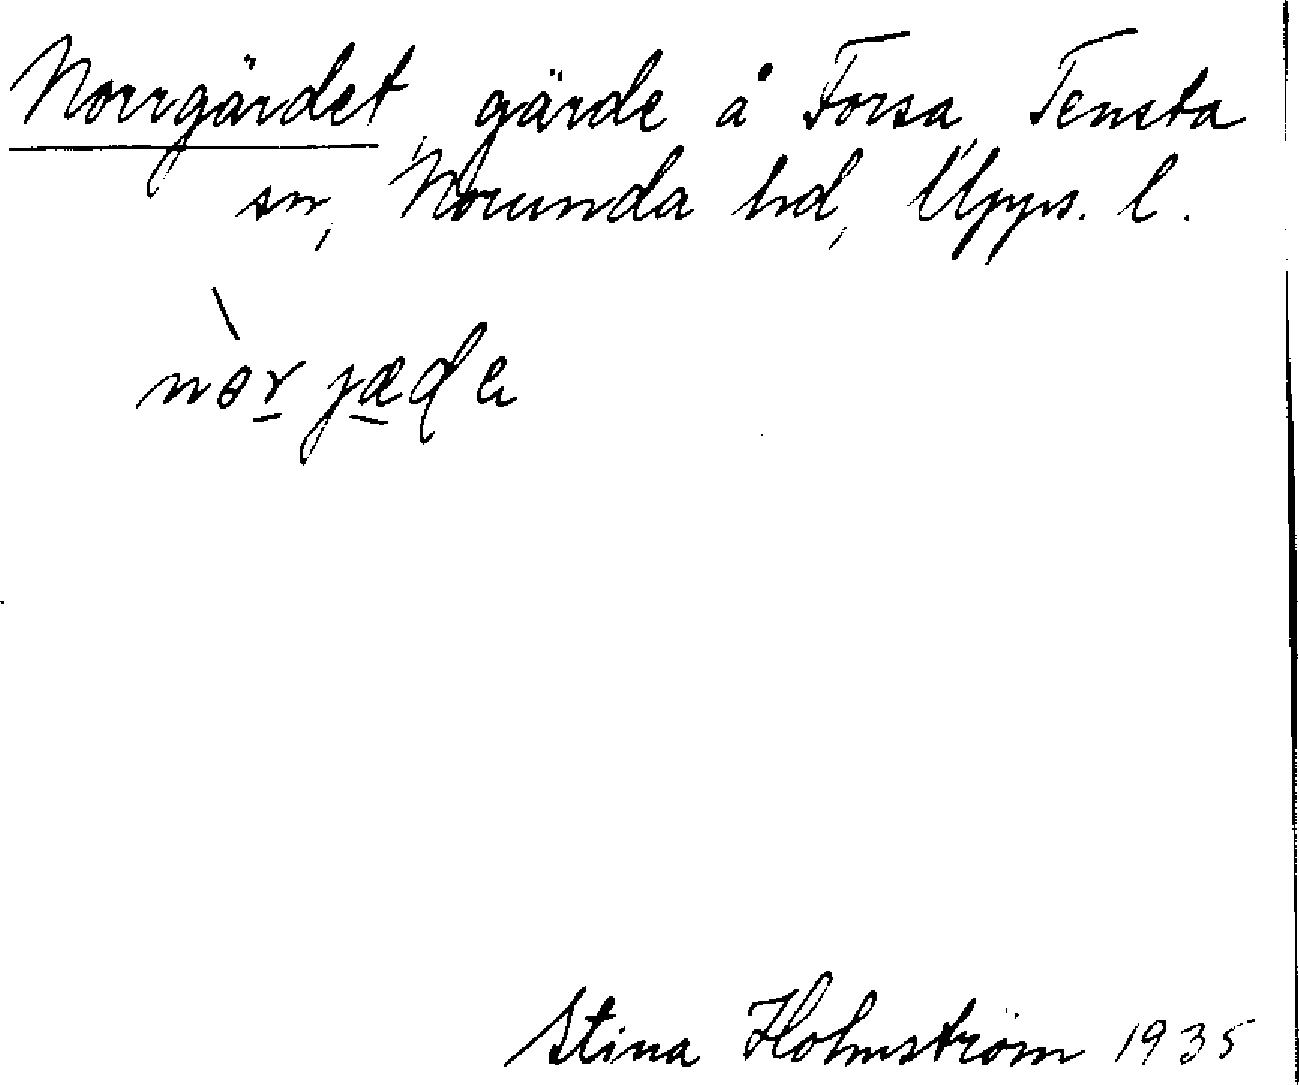 Norrgärdet, gärde å Forsa, Tensta
sn, Norunda hd, Upps. l.
nòr jæde
Stina Holmström 1935